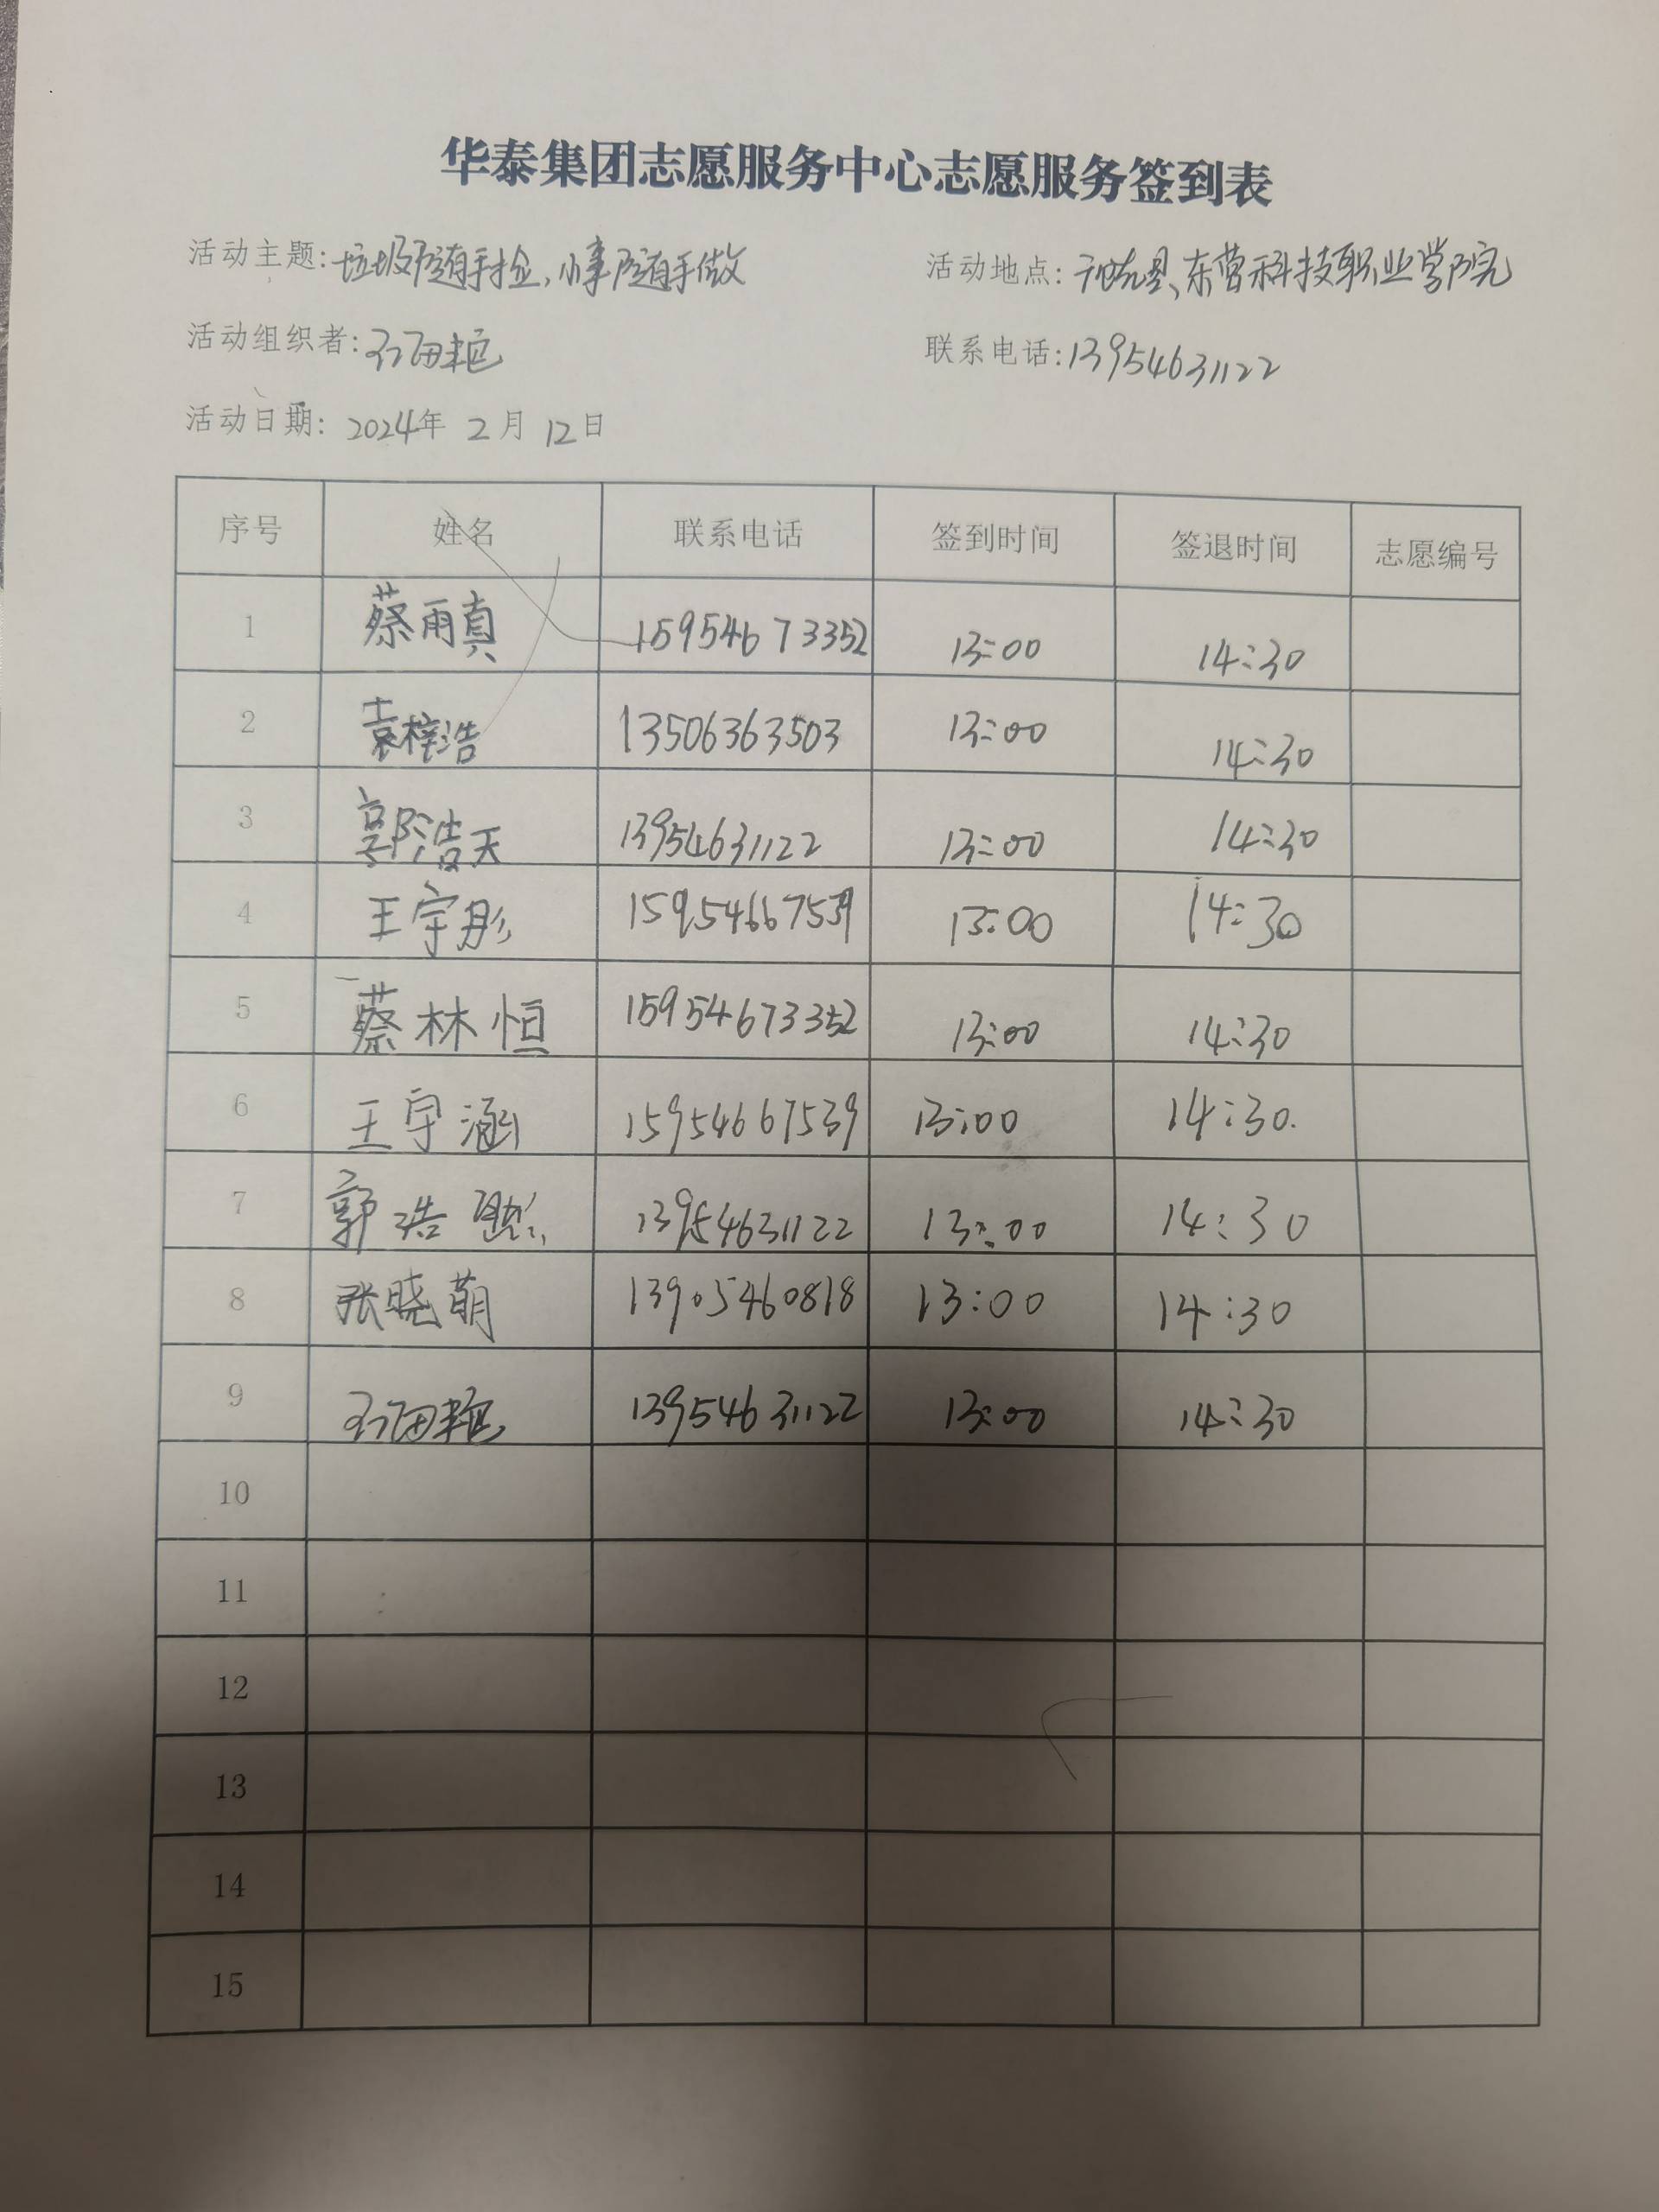 华泰集团志愿服务中心志愿服务签到表
活动主题: 垃圾随手捡,小事随手做 活动地点: 东营科技职业学院
活动组织者: 联系电话: 13954631122
活动日期: 2024年 2月 12日
序号 姓名 联系电话 签到时间 签退时间 志愿编号
1 蔡雨真 15954673352 13:00 14:30
2 袁梓浩 13506363503 13:00 14:30
3 郭浩天 13954631122 13:00 14:30
4 王宇彤 15954667539 13:00 14:30
5 蔡林恒 15954673352 13:00 14:30
6 王宇涵 15954667539 13:00 14:30.
7 郭浩 13954631122 13:00 14:30
8 张晓萌 13905460818 13:00 14:30
9 13954631122 13:00 14:30
10
11
12
13
14
15